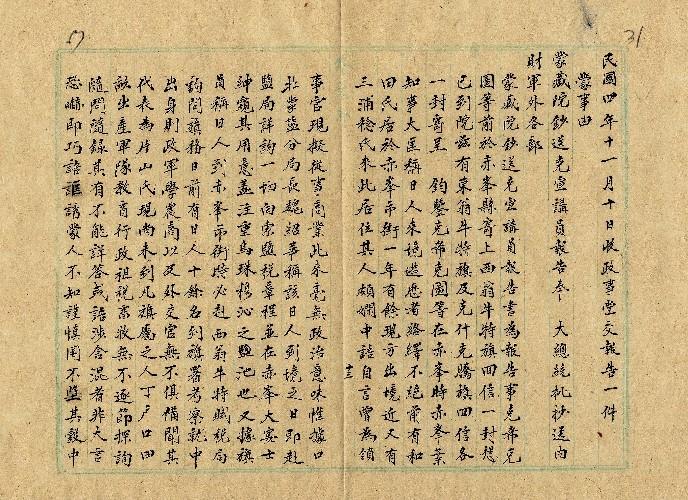 31
民國四年十一月十日收政事堂交報告一件
蒙事由
蒙藏院鈔送克宣講員報告奉 大總統批抄送內
財軍外各部
蒙藏院鈔送克宣講員報告書為報告事克希克
圖等前於赤峯縣寄上西翁牛特旗回信一封想
已到院茲有東翁牛特旗及克什克騰旗回信各
一封寄呈 鈞鑒克希克圖等在赤峯時赤峯葉
知事大匡稱日人來境遊歷者絡繹不絕前有和
田氏居於赤峯市街一年有餘現方出境近又有
三浦稔氏來此居住其人頗嫻中語自言曾為領
十三
事官現擬從事商業此來毫無政治意味惟據口
北蒙鹽分局長魏紹華稱該日人到境之日即赴
鹽局詳詢一切向索鹽稅章程並在赤峯大宴士
紳窺其用意蓋注重烏珠穆沁之鹽池也又據旗
員稱日人到赤峯市街時必赴西翁牛特賦稅局
詢問旗務日前有日人十餘名到旗署考察就中
出身則政軍學農商以及外交官無不俱備聞其
代表為片山氏現尚未到凡旗屬之人丁戶口田
畝出產軍隊教育行政租稅宗教無不逐節探詢
隨問隨錄其有不能詳答或語涉含混者非大言
恐嚇即巧語誆誘蒙人不知謹慎罔不墮其彀中